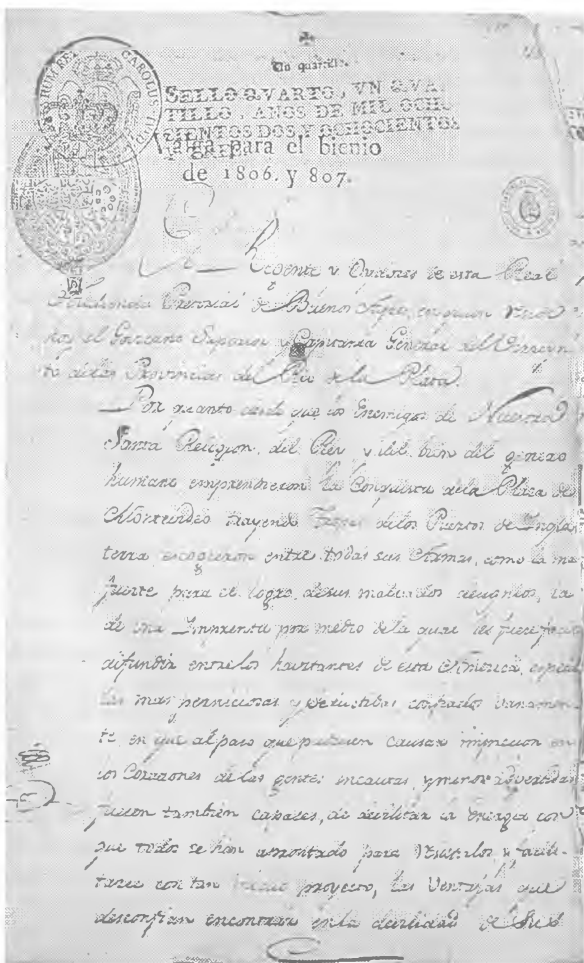 Un quartillo.
SELLO QVARTO, VN QVAR
TILLO, AÑOS DE MIL OCHO
CIENTOS DOS, Y OCHOCIENTOS
Valga para el bienio
de 1806. y 807.
CAROLUS
Regente y Oydores de esta Real
Audiencia Pretorial de Buenos Ayres, en quien reside
hoy el Govierno Superior y Capitania General del Virreyna
to de las Provincias del Rio de la Plata.
Por quanto desde que los Enemigos de Nuestra
Santa Religion, del Rey y del bien del genero
humano emprendieron la Conquista de la Plaza de
Montevideo trayendo de los Puertos de Ingla
terra escogieron entre todas sus Armas, como la mas
fuerte para el logro de sus malvados designios, la
de una Imprenta por medio de la qual les fuese facil
difundir entre los havitantes de esta America, especies
las mas perniciosas y seductibas confiados vanamen-
te, en que al paso que pudiesen causar imprecion en
los Corazones de las gentes incautas, y menos advertidas
fuesen tambien capaces, de devilitar la energia con
que todos se han aprontado para resistirlos y facili-
tarse con tan proyecto, las Ventajas que
desconfian encontrar en la devilidad de sus